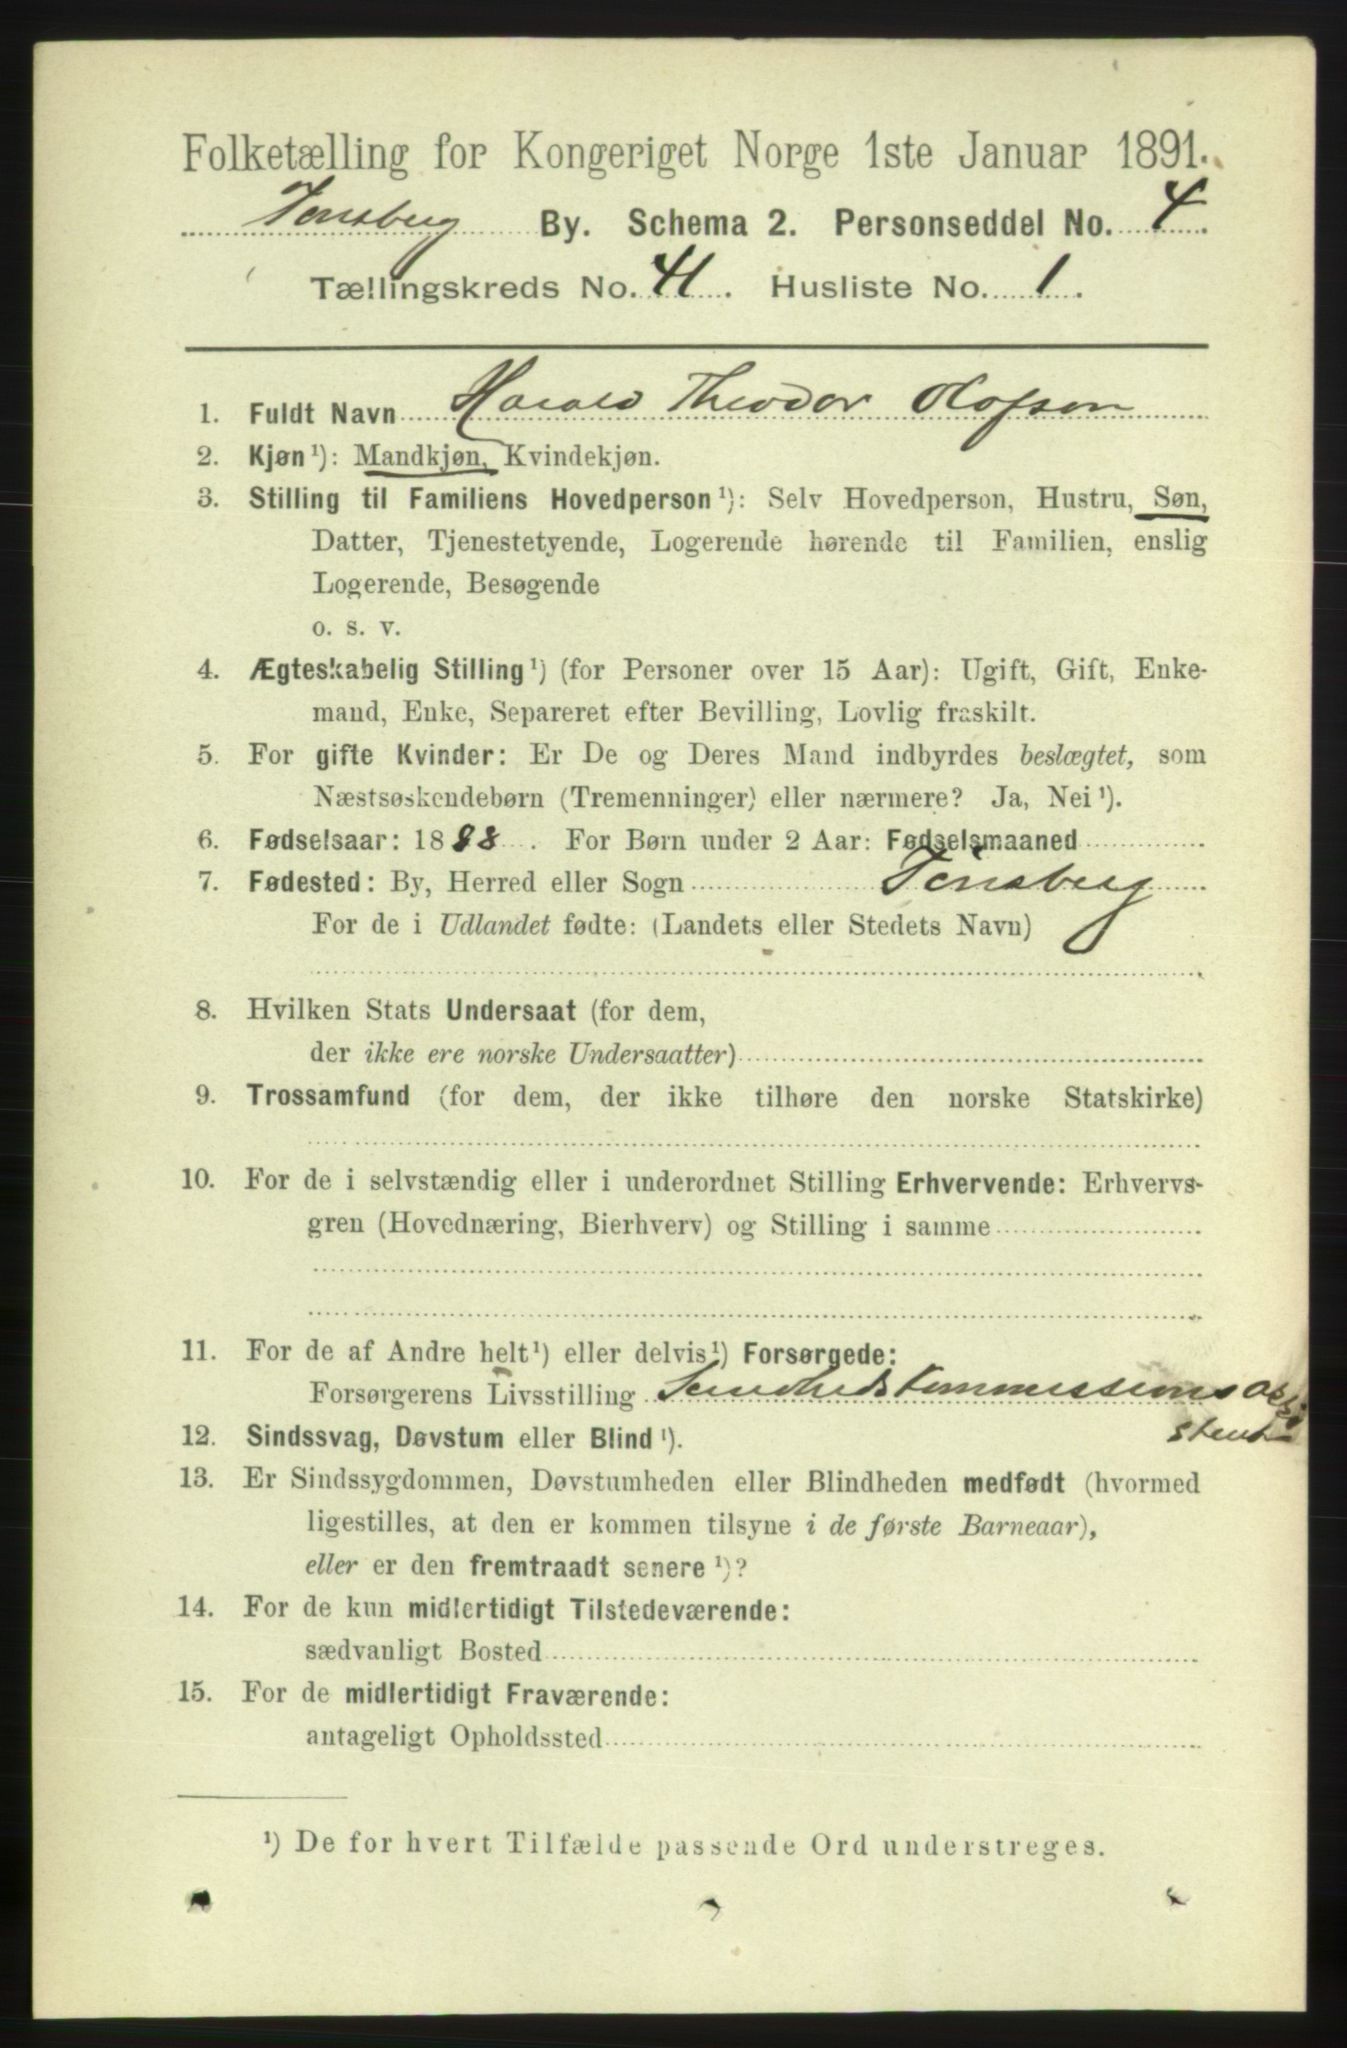 Folketælling for Kongeriget Norge 1ste Januar 1891.
Tønsberg By. Schema 2. Personseddel No. 4
Tællingskreds No. 41. Husliste No. 1.
1. Fuldt Navn Harald Theodor Olofson
2. Kjøn¹): Mandkjøn, Kvindekjøn.
3. Stilling til Familiens Hovedperson¹): Selv Hovedperson, Hustru, Søn,
Datter, Tjenestetyende, Logerende hørende til Familien, enslig
Logerende, Besøgende
o. s. v.
4. Ægteskabelig Stilling¹) (for Personer over 15 Aar): Ugift, Gift, Enke-
mand, Enke, Separeret efter Bevilling, Lovlig fraskilt.
5. For gifte Kvinder: Er De og Deres Mand indbyrdes beslægtet, som
Næstsøskendebørn (Tremenninger) eller nærmere? Ja, Nei¹).
6. Fødselsaar: 1888. For Børn under 2 Aar: Fødselsmaaned
7. Fødested: By, Herred eller Sogn Tønsberg
For de i Udlandet fødte: (Landets eller Stedets Navn)
8. Hvilken Stats Undersaat (for dem,
der ikke ere norske Undersaatter)
9. Trossamfund (for dem, der ikke tilhøre den norske Statskirke)
10. For de i selvstændig eller i underordnet Stilling Erhvervende: Erhvervs-
gren (Hovednæring, Bierhverv) og Stilling i samme
11. For de af Andre helt¹) eller delvis¹) Forsørgede:
Forsørgerens Livsstilling Sundhedskommissions assi
stent
12. Sindssvag, Døvstum eller Blind¹).
13. Er Sindssygdommen, Døvstumheden eller Blindheden medfødt (hvormed
ligestilles, at den er kommen tilsyne i de første Barneaar),
eller er den fremtraadt senere¹)?
14. For de kun midlertidigt Tilstedeværende:
sædvanligt Bosted
15. For de midlertidigt Fraværende:
antageligt Opholdssted
¹) De for hvert Tilfælde passende Ord understreges.